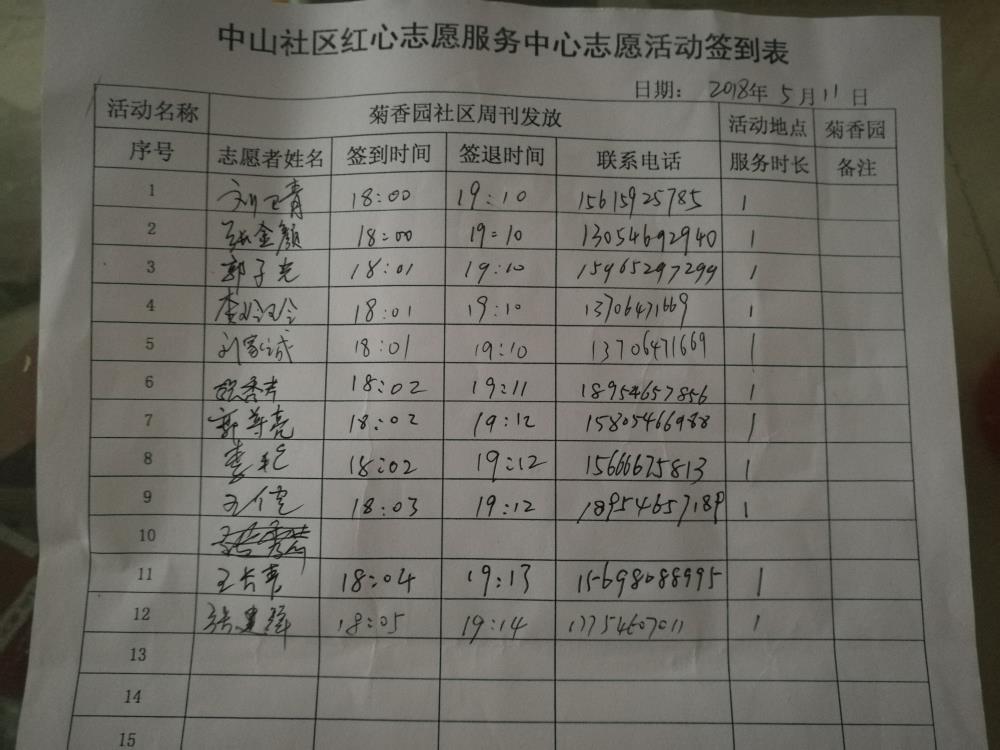 中山社区红心志愿服务中心志愿活动签到表
日期： 2018年 5 月 11 日
活动名称 菊香园社区周刊发放 活动地点 菊香园
序号 志愿者姓名 签到时间 签退时间 联系电话 服务时长 备注
1 刘卫青 18:00 19:10 15615925785 1
2 张金颜 18:00 19:10 13054692940 1
3 郭子光 18:01 19:10 15965297299 1
4 李 18:01 19:10 13706471669 1
5 刘家诚 18:01 19:10 13706471669 1
6 18:02 19:11 18954657856 1
7 郭尊亮 18:02 19:12 15805466988 1
8 李 18:02 19:12 15666675813 1
9 王 18:03 19:12 18954657189 1
10
11 王长青 18:04 19:13 15698088995 1
12 张建强 18:05 19:14 17754607011 1
13
14
15